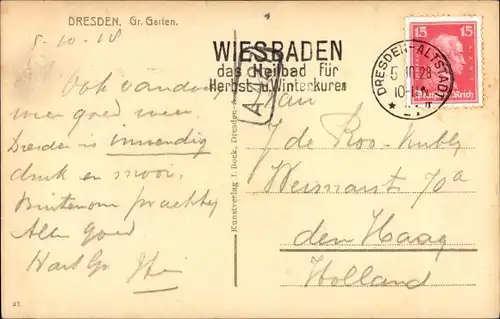 DRESDEN, Gr. Garten.
5-10-28
Ook vandaag
weer goed weer.
Dresden is inwendig
druk en mooi,
Buitenom prachtig
Alles Goed
Hart Gr
WIESBADEN
das Heilbad für
Herbst u. Winterkuren
DRESDEN-ALTSTADT
5.10.28
10-11
15 15
Deutsches Reich
A
Aan
J de Roo-
Weimarst 70a
den Haag
Holland
Kunstverlag J. Bock, Dresden